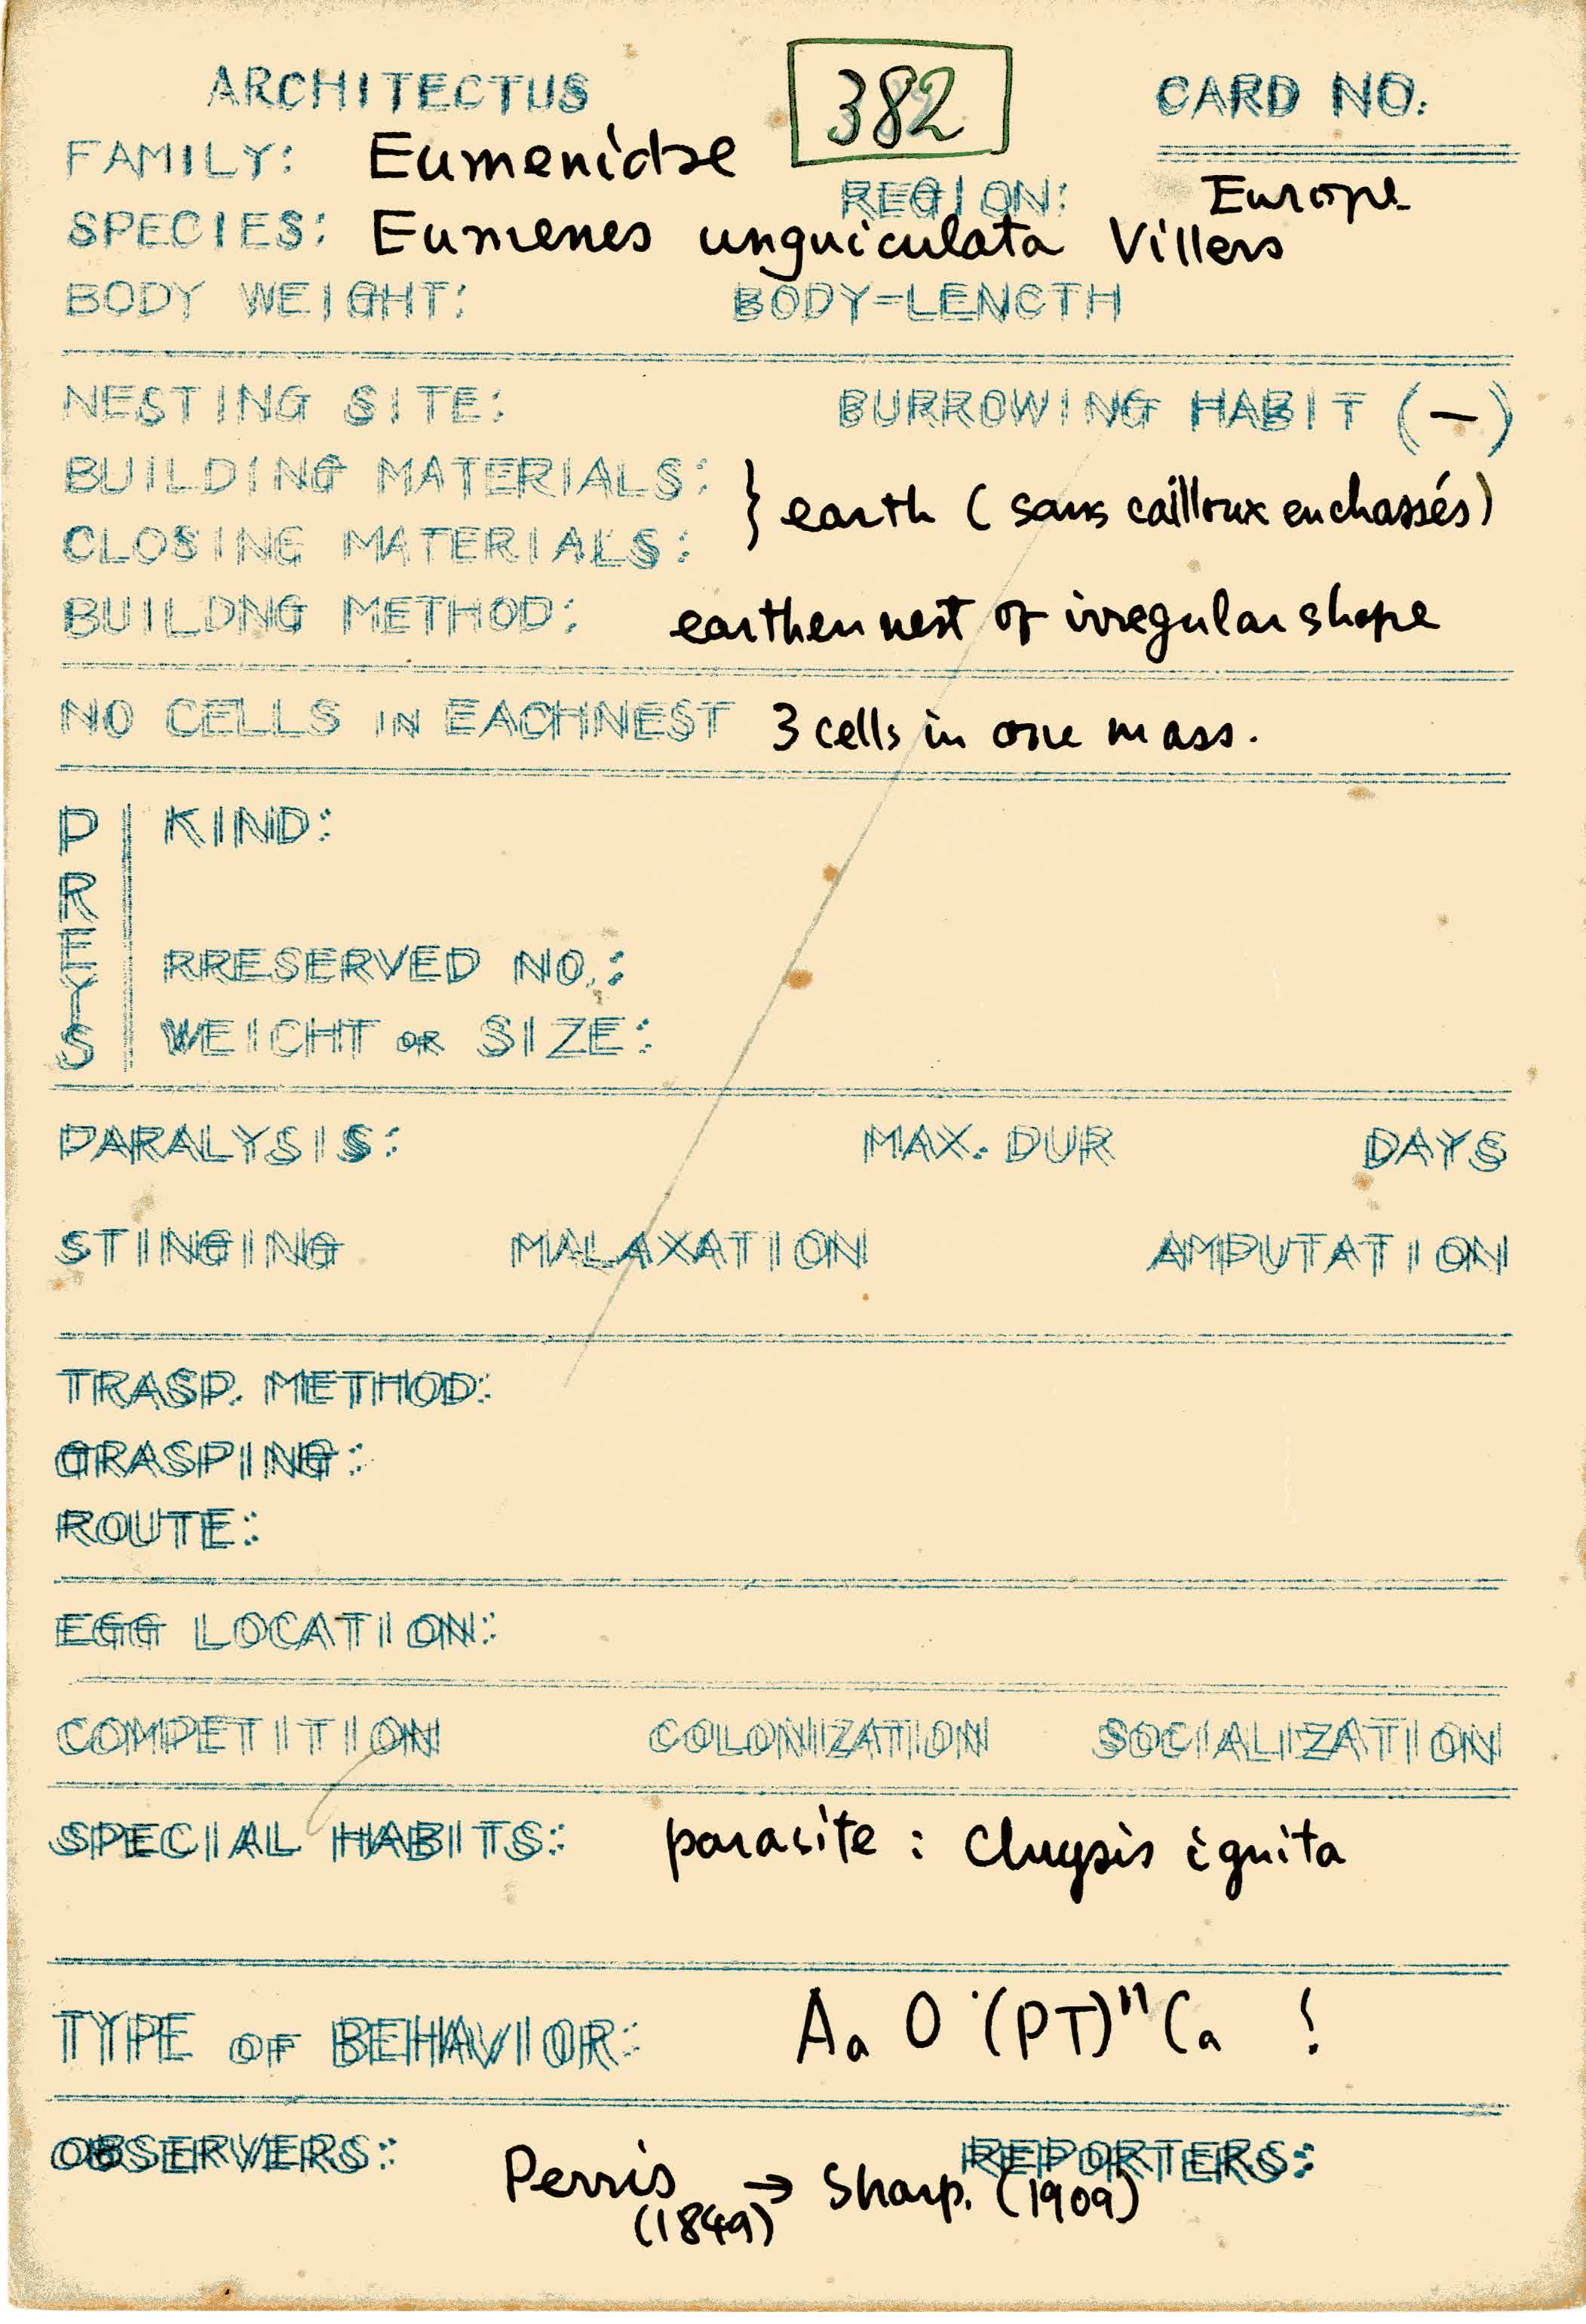 ARCHITECTUS 382 CARD NO.
FAMILY: Eumenidae
REGION: Europe
SPECIES: Eumenes unguiculata Villers
BODY WEIGHT: BODY-LENGTH
NESTING SITE: BURROWING HABIT (-)
BUILDING MATERIALS:
CLOSING MATERIALS: } earth (sans cailloux enchassés)
BUILDNG METHOD: earthen nest of irregular shape
NO CELLS IN EACHNEST 3 cells in one mass.
PREYS
KIND:
RRESERVED NO.:
WEIGHT OR SIZE:
PARALYSIS: MAX. DUR DAYS
STINGING MALAXATION AMPUTATION
TRASP. METHOD:
GRASPING:
ROUTE:
EGG LOCATION:
COMPETITION COLONIZATION SOCIALIZATION
SPECIAL HABITS: parasite : Chrysis ignita
TYPE OF BEHAVIOR: Aa O (PT)ⁿ Ca !
OBSERVERS: REPORTERS:
Perris (1849) → Sharp. (1909)